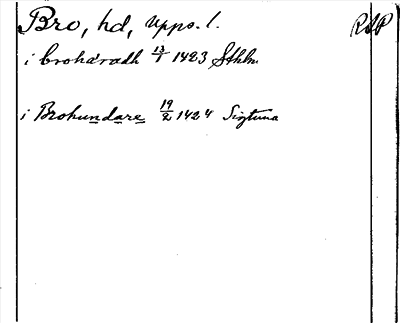 Bro, hd, Upps. l. RAP
i brohäradh 13/1 1423 Sthlm.
i Brohundare 19/2 1424 Sigtuna